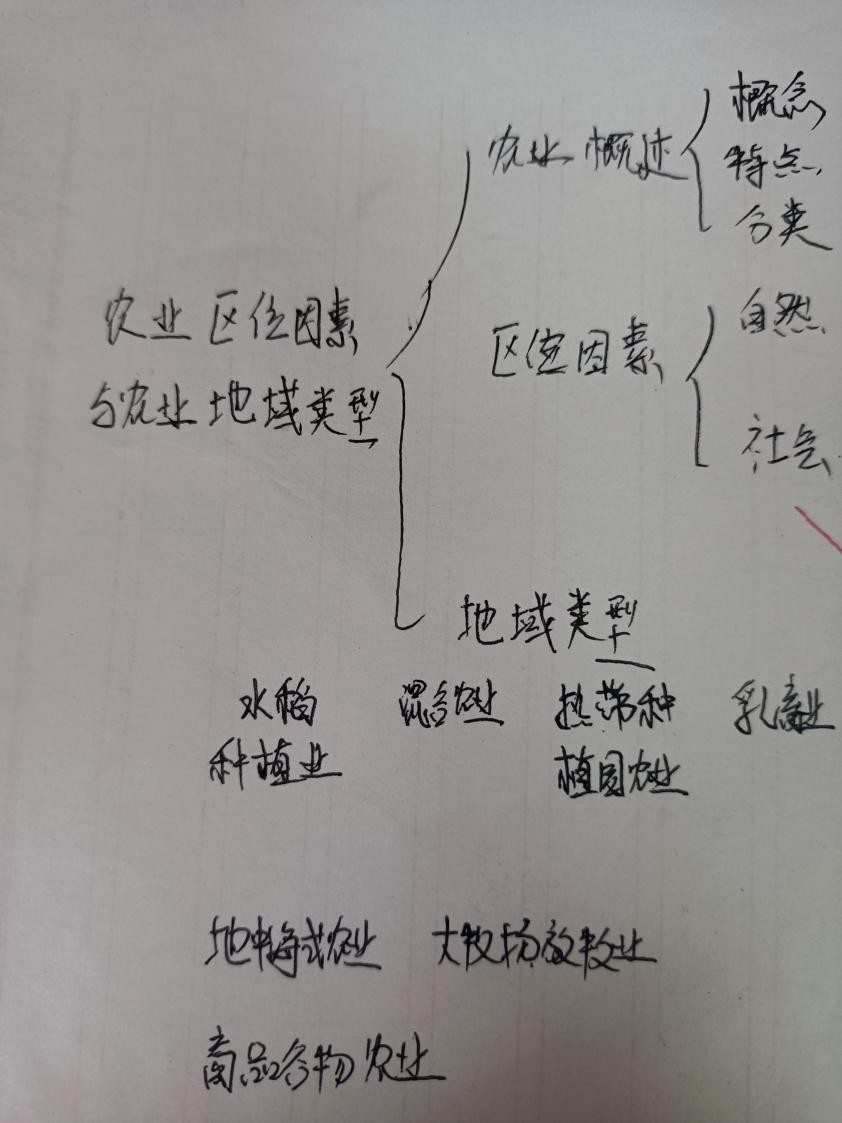 农业概述
概念
特点
分类
农业区位因素
与农业地域类型
区位因素
自然
社会
地域类型
水稻
种植业
混合农业
热带种
植园农业
乳畜业
地中海式农业
大牧场放牧业
商品谷物农业